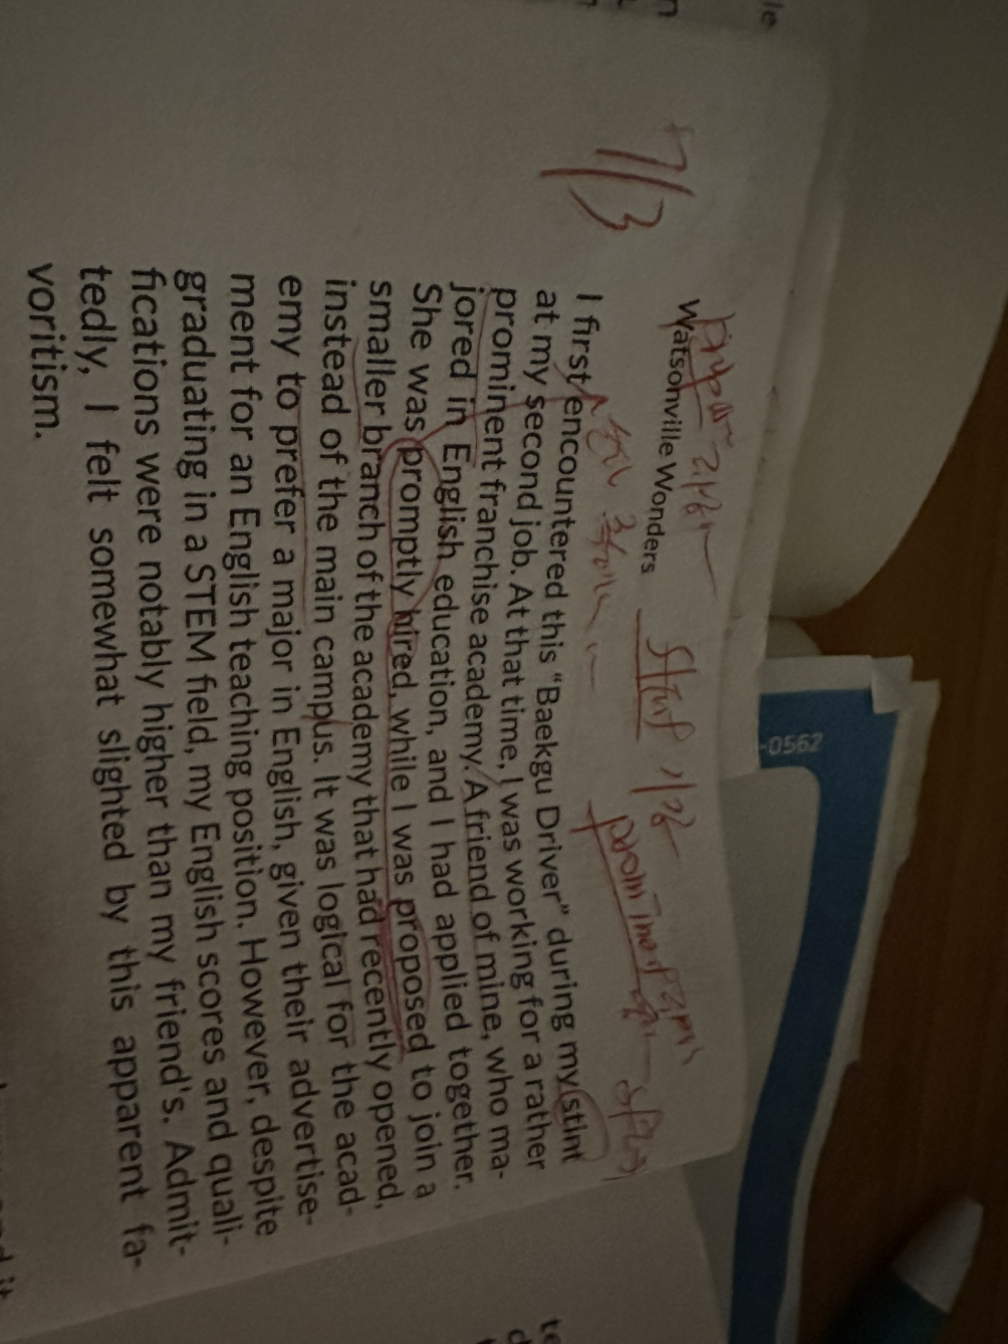 Watsonville Wonders
7/3
I first encountered this “Baekgu Driver” during my stint
at my second job. At that time, I was working for a rather
prominent franchise academy. A friend of mine, who ma-
jored in English education, and I had applied together.
She was promptly hired, while I was proposed to join a
smaller branch of the academy that had recently opened,
instead of the main campus. It was logical for the acad-
emy to prefer a major in English, given their advertise-
ment for an English teaching position. However, despite
graduating in a STEM field, my English scores and quali-
fications were notably higher than my friend's. Admit-
tedly, I felt somewhat slighted by this apparent fa-
voritism.
-0562